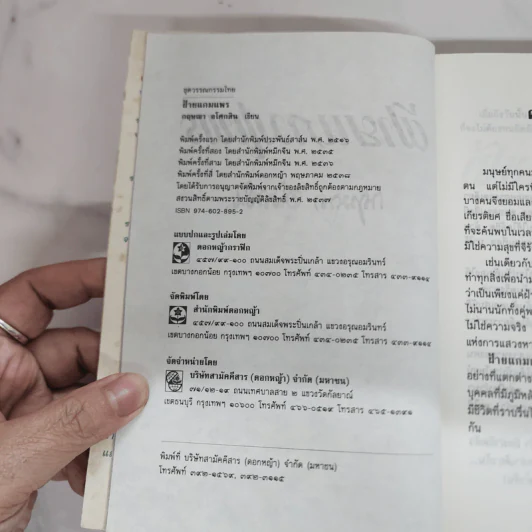 ชุดวรรณกรรมไทย
ฝ้ายแกมแพร
กฤษณา อโศกสิน เขียน
พิมพ์ครั้งแรก โดยสำนักพิมพ์ประพันธ์สาส์น พ.ศ. ๒๕๑๖
พิมพ์ครั้งที่สอง โดยสำนักพิมพ์หมึกจีน พ.ศ. ๒๕๓๕
พิมพ์ครั้งที่สาม โดยสำนักพิมพ์หมึกจีน พ.ศ. ๒๕๓๖
พิมพ์ครั้งที่สี่ โดยสำนักพิมพ์ดอกหญ้า พฤษภาคม ๒๕๓๘
โดยได้รับการอนุญาตจัดพิมพ์จากเจ้าของลิขสิทธิ์ถูกต้องตามกฎหมาย
สงวนสิทธิ์ตามพระราชบัญญัติลิขสิทธิ์ พ.ศ. ๒๕๓๗
ISBN 974-602-895-2
แบบปกและรูปเล่มโดย
ดอกหญ้ากราฟิค
๔๕๗/๙๙-๑๐๐ ถนนสมเด็จพระปิ่นเกล้า แขวงอรุณอมรินทร์
เขตบางกอกน้อย กรุงเทพฯ ๑๐๗๐๐ โทรศัพท์ ๔๓๔-๐๒๓๕ โทรสาร ๔๓๓-๙๑๑๔
จัดพิมพ์โดย
สำนักพิมพ์ดอกหญ้า
๔๕๗/๙๙-๑๐๐ ถนนสมเด็จพระปิ่นเกล้า แขวงอรุณอมรินทร์
เขตบางกอกน้อย กรุงเทพฯ ๑๐๗๐๐ โทรศัพท์ ๔๓๔-๐๒๓๕ โทรสาร ๔๓๓-๙๑๑๔
จัดจำหน่ายโดย
บริษัทสามัคคีสาร (ดอกหญ้า) จำกัด (มหาชน)
๗๑/๑๒-๑๙ ถนนเทศบาลสาย ๒ แขวงวัดกัลยาณ์
เขตธนบุรี กรุงเทพฯ ๑๐๖๐๐ โทรศัพท์ ๔๖๖-๐๕๑๙ โทรสาร ๔๖๕-๑๓๙๑
พิมพ์ที่ บริษัทสามัคคีสาร (ดอกหญ้า) จำกัด (มหาชน)
โทรศัพท์ ๓๙๒-๑๕๖๙, ๓๙๒-๓๑๑๕
มนุษย์ทุกคน
ตน แต่ไม่มีใคร
บางคนจึงยอมแล
เกียรติยศ ชื่อเสีย
ที่จะค้นพบในเวล
มิใช่ความสุขที่จีรั
เช่นเดียวกับ
ทำทุกสิ่งเพื่อนำม
ว่าเป็นเพียงแค่ฝ้
ไม่นานนักทั้งคู่พ
ไม่ใช่ความจริง
แห่งการแสวงหา
ฝ้ายแกมแ
อย่างที่แตกต่าง
บุคคลที่มีภูมิหลั
มีชีวิตที่ราบรื่น
กัน